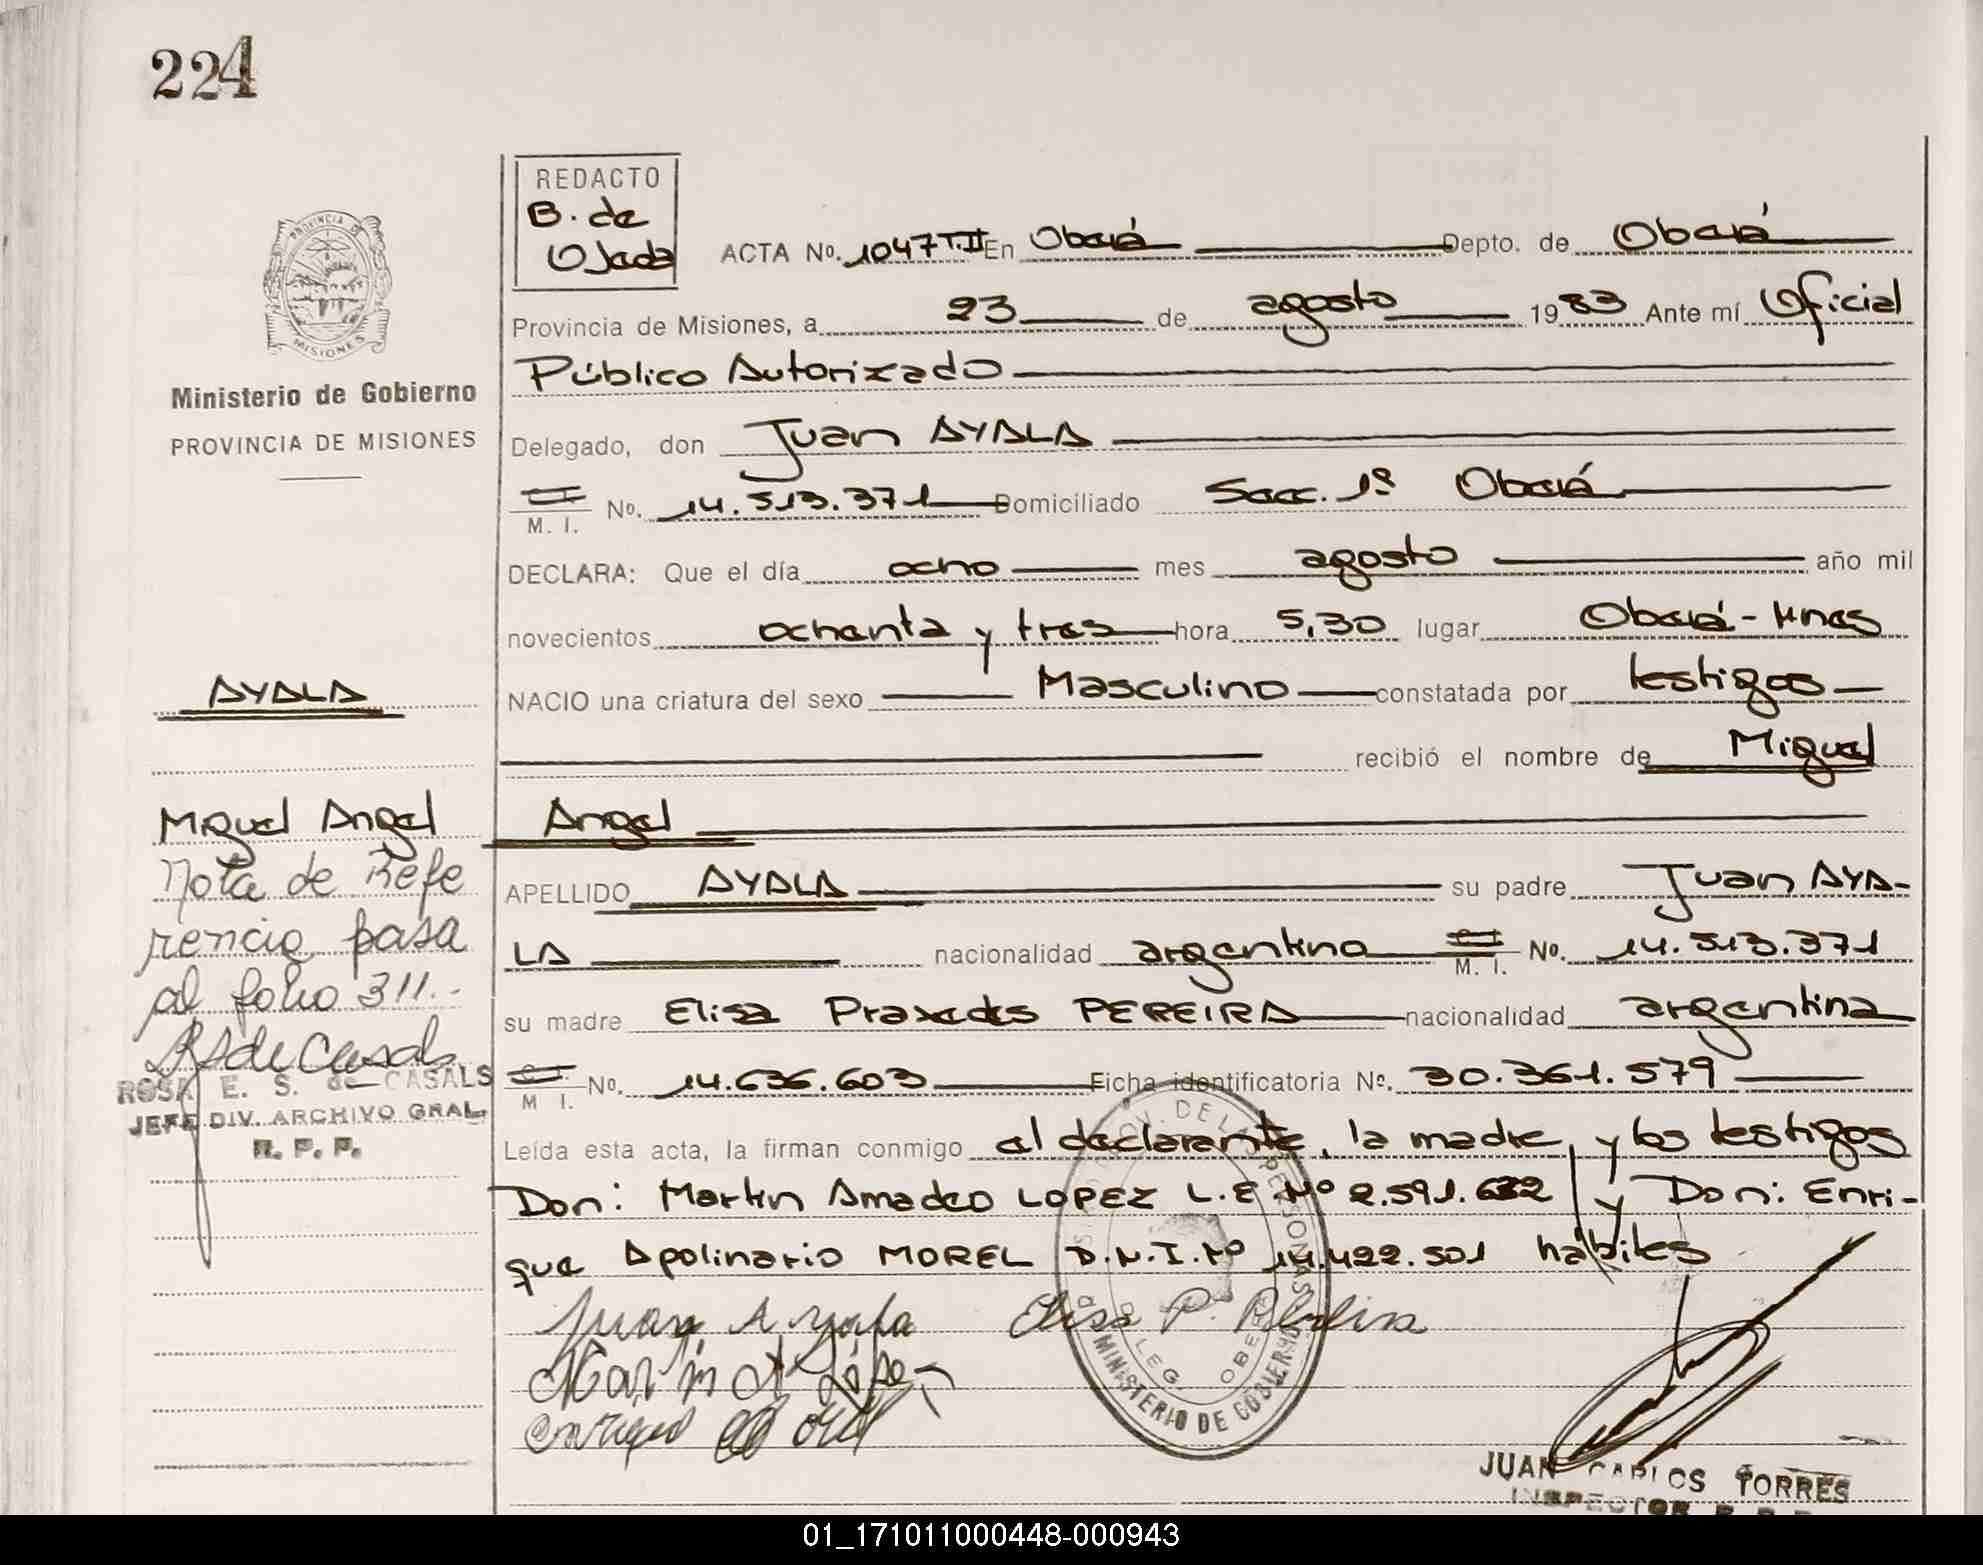 224
REDACTO
B. de
Ojeda
ACTA No. 1047 T.II En Oberá Depto. de Oberá
Provincia de Misiones, a 23 de agosto 1983 Ante mí Oficial
Público Autorizado
Delegado, don Juan AYALA
C.I. M. I. No. 14.513.371 Domiciliado Secc. 1º Oberá
DECLARA: Que el día ocho mes agosto año mil
novecientos ochenta y tres hora 5,30 lugar Oberá - Mnes
NACIO una criatura del sexo Masculino constatada por testigos
recibió el nombre de Miguel
Angel
APELLIDO AYALA su padre Juan AYA-
LA nacionalidad argentina M. I. No. 14.513.371
su madre Elisa Praxedes PEREIRA nacionalidad argentina
M I. No. 14.636.603 Ficha identificatoria No. 30.361.579
Leída esta acta, la firman conmigo el declarante, la madre, y los testigos
Don: Martin Amadeo LOPEZ L.E Nº 2.591.632 y Don: Enri-
que Apolinario MOREL D.N.I. Nº 14.422.501 hábiles
Juan Ayala Elisa P. Pereira
Martin A López
JUAN CARLOS TORRES
INSPECTOR
PROVINCIA DE
MISIONES
Ministerio de Gobierno
PROVINCIA DE MISIONES
AYALA
Miguel Angel
Nota de Refe
rencia pasa
al folio 311.-
RSdeCasals
ROSA E. S. de CASALS
JEFE DIV. ARCHIVO GRAL.
R. P. P.
DE LAS PERSONAS
DELEG. OBERA
MINISTERIO DE GOBIERNO
01_171011000448-000943